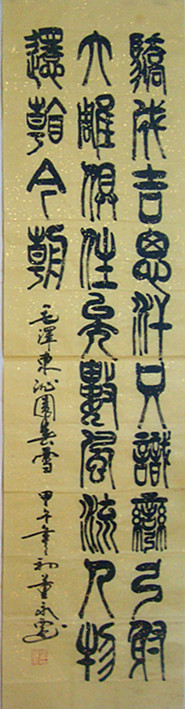 驕成吉思汗只識彎弓射
大雕俱往矣數風流人物
還看今朝
毛澤東沁園春雪
甲午年初董永